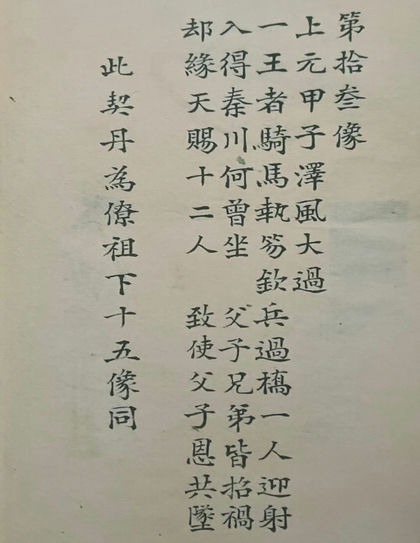 第拾叁像
上元甲子澤風大過
一王者騎馬執笏欽兵過橋一人迎射
入得秦川何曾坐　父子兄第皆招禍
却緣天賜十二人　致使父子恩共墜
此契丹為僚祖下十五像同